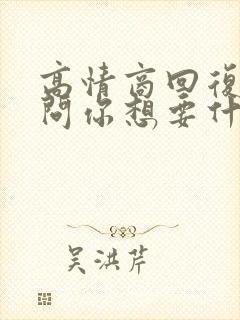 高情商回復
問你想要什
吴洪芹